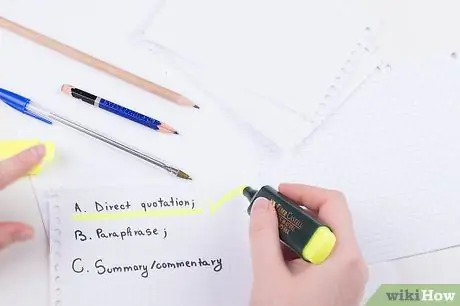 A. Direct quotation;
B. Paraphrase;
C. Summary/commentary
FABER-CASTELL
wikiHow